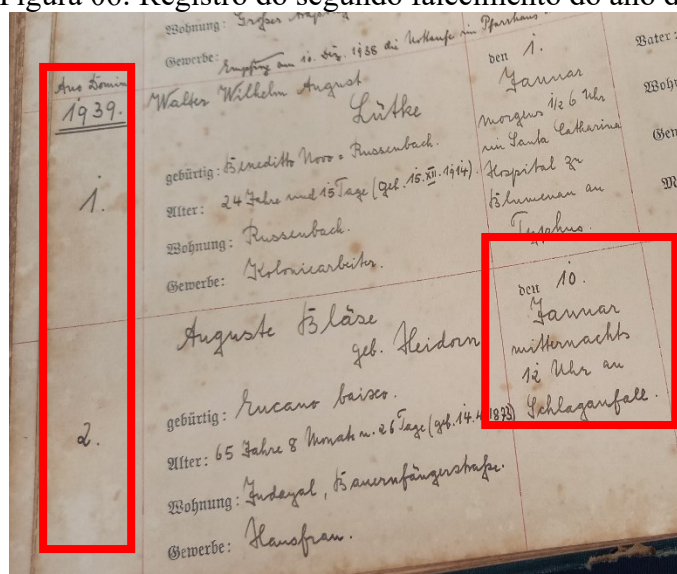 Figura 00: Registro do segundo falecimento do ano d
Wohnung: Großer
Gewerbe: Empfing am 10. Dez. 1938 die Nottaufe im Pfarrhaus.
Anno Domini
1939.
1.
Walter Wilhelm August
Lütke
gebürtig: Beneditto Novo = Russenbach.
Alter: 24 Jahre und 15 Tage (geb. 15.XII.1914).
Wohnung: Russenbach.
Gewerbe: Koloniearbeiter.
den 1.
Januar
morgens 1/2 6 Uhr
im Santa Catharina
Hospital zu
Blumenau an
Typhus.
Vater:
Woh
Gew
2.
Auguste Bläse
geb. Heidorn
gebürtig: Encano baixo.
Alter: 65 Jahre 8 Monate u. 26 Tage (geb. 14.4.1873)
Wohnung: Indayal, Bauernfängerstraße.
Gewerbe: Hausfrau.
den 10.
Januar
mitternachts
12 Uhr an
Schlaganfall.